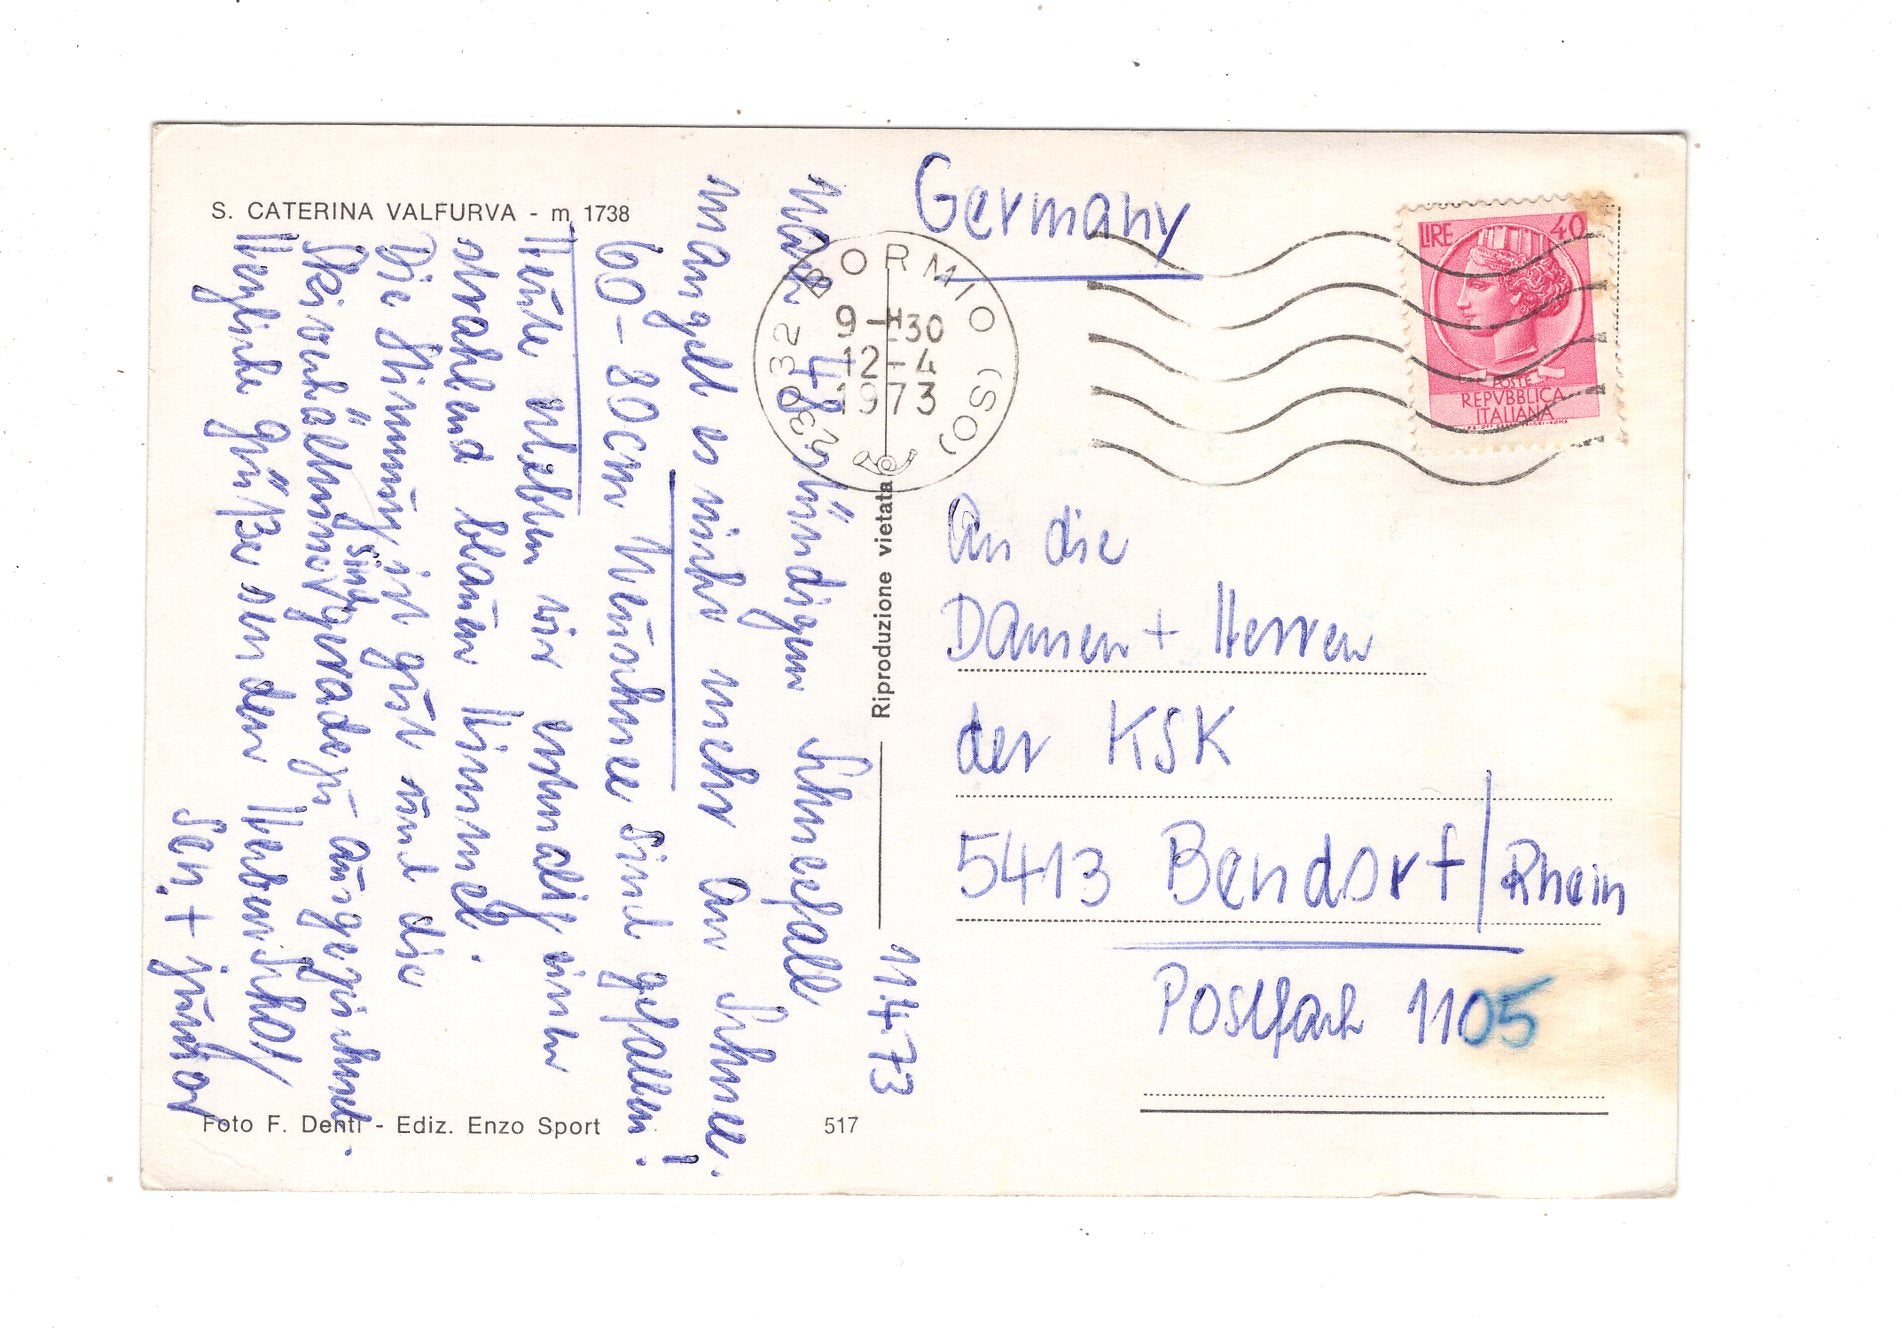 S. CATERINA VALFURVA - m 1738
11.4.73
Nach 48 stündigem Schneefall
mangelt es nicht mehr an Schnee.
60-80cm Neuschnee sind gefallen!
Heute erlebten wir erstmalig einen
strahlend blauen Himmel.
Die Stimmung ist gut und die
Skiverhältnisse sind geradezu ausgezeichnet.
Herzliche Grüße von den
sen. + junior
Foto F. Denti - Ediz. Enzo Sport
517
Riproduzione vietata
Germany
30032 BORMIO (SO)
9-H30
12-4
1973
LIRE 40
POSTE
REPVBBLICA
ITALIANA
An die
Damen + Herren
der KSK
5413 Bendorf/Rhein
Postfach 1105